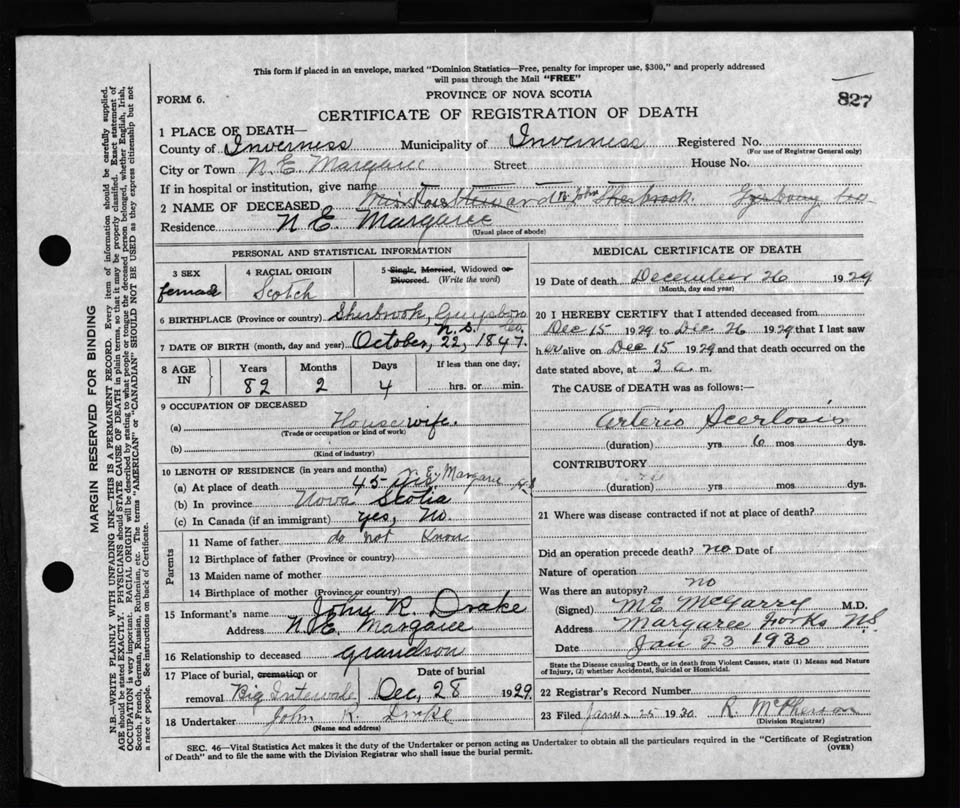 This form if placed in an envelope, marked "Dominion Statistics—Free, penalty for improper use, $300," and properly addressed
will pass through the Mail "FREE"
PROVINCE OF NOVA SCOTIA
827
FORM 6.
CERTIFICATE OF REGISTRATION OF DEATH
1 PLACE OF DEATH—
County of Inverness Municipality of Inverness Registered No.
(For use of Registrar General only)
City or Town N. E. Margaree Street House No.
If in hospital or institution, give name
2 NAME OF DECEASED Sherbrook
Residence N. E. Margaree
(Usual place of abode)
PERSONAL AND STATISTICAL INFORMATION
3 SEX
female
4 RACIAL ORIGIN
Scotch
5 Single, Married, Widowed or
Divorced. (Write the word)
6 BIRTHPLACE (Province or country) Sherbrook, Guysboro
N.S. Co.
7 DATE OF BIRTH (month, day and year) October, 22, 1847.
8 AGE IN Years Months Days If less than one day,
82 2 4 hrs. or min.
9 OCCUPATION OF DECEASED
(a) Housewife.
(Trade or occupation or kind of work)
(b)
(Kind of industry)
10 LENGTH OF RESIDENCE (in years and months)
(a) At place of death 45 E. Margaree
(b) In province Nova Scotia
(c) In Canada (if an immigrant) yes, No.
Parents
11 Name of father do not Know
12 Birthplace of father (Province or country)
13 Maiden name of mother
14 Birthplace of mother (Province or country)
15 Informant's name John R. Drake
Address N. E. Margaree
16 Relationship to deceased grandson
17 Place of burial, cremation or Date of burial
removal Big Intervale Dec, 28 1929
18 Undertaker John R. Drake
(Name and address)
MEDICAL CERTIFICATE OF DEATH
19 Date of death December 26 1929
(Month, day and year)
20 I HEREBY CERTIFY that I attended deceased from
Dec 15 1929 to Dec 26 1929 that I last saw
her alive on Dec 15 1929 and that death occurred on the
date stated above, at 3 a. m.
The CAUSE OF DEATH was as follows:—
Arterio Scerlosis
(duration) yrs 6 mos dys.
CONTRIBUTORY
(duration) yrs. mos. dys.
21 Where was disease contracted if not at place of death?
Did an operation precede death? no Date of
Nature of operation
Was there an autopsy? no
(Signed) M.E. McGarry M.D.
Address Margaree Forks NS
Date Jan 23 1930
State the Disease causing Death, or in death from Violent Causes, state (1) Means and Nature
of Injury, (2) whether Accidental, Suicidal or Homicidal.
22 Registrar's Record Number
23 Filed Janu. 25 1930 R. McPherson
(Division Registrar)
SEC. 46—Vital Statistics Act makes it the duty of the Undertaker or person acting as Undertaker to obtain all the particulars required in the "Certificate of Registration
of Death" and to file the same with the Division Registrar who shall issue the burial permit. (OVER)
MARGIN RESERVED FOR BINDING
N.B.—WRITE PLAINLY WITH UNFADING INK—THIS IS A PERMANENT RECORD. Every item of information should be carefully supplied.
AGE should be stated EXACTLY. PHYSICIANS should STATE CAUSE OF DEATH in plain terms, so that it may be properly classified. Exact statement of
OCCUPATION is very important. RACIAL ORIGIN will be described by stating to what people or tongue the deceased person belonged, whether English, Irish,
Scotch, French, German, Russian, Ruthenian, etc. The terms "AMERICAN" or "CANADIAN" SHOULD NOT BE USED as they express citizenship but not
a race or people. See instructions on back of Certificate.